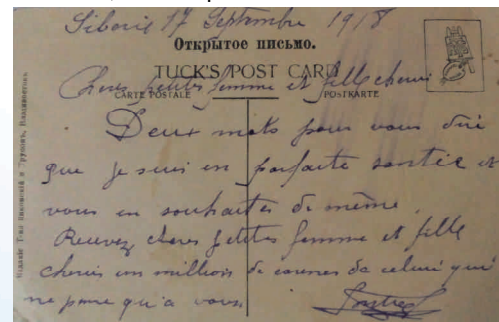 Siberie 17 Septembre 1918
Открытое письмо.
TUCK'S POST CARD
CARTE POSTALE POSTKARTE
Cheres petites femme et fille cherie
Deux mots pour vous dire
que je suis en parfaite santée et
vous en souhaites de même.
Recevez cheres petites femme et fille
cheries un million de caresses de celui qui
ne pense qu'a vous
Издание Т-ва